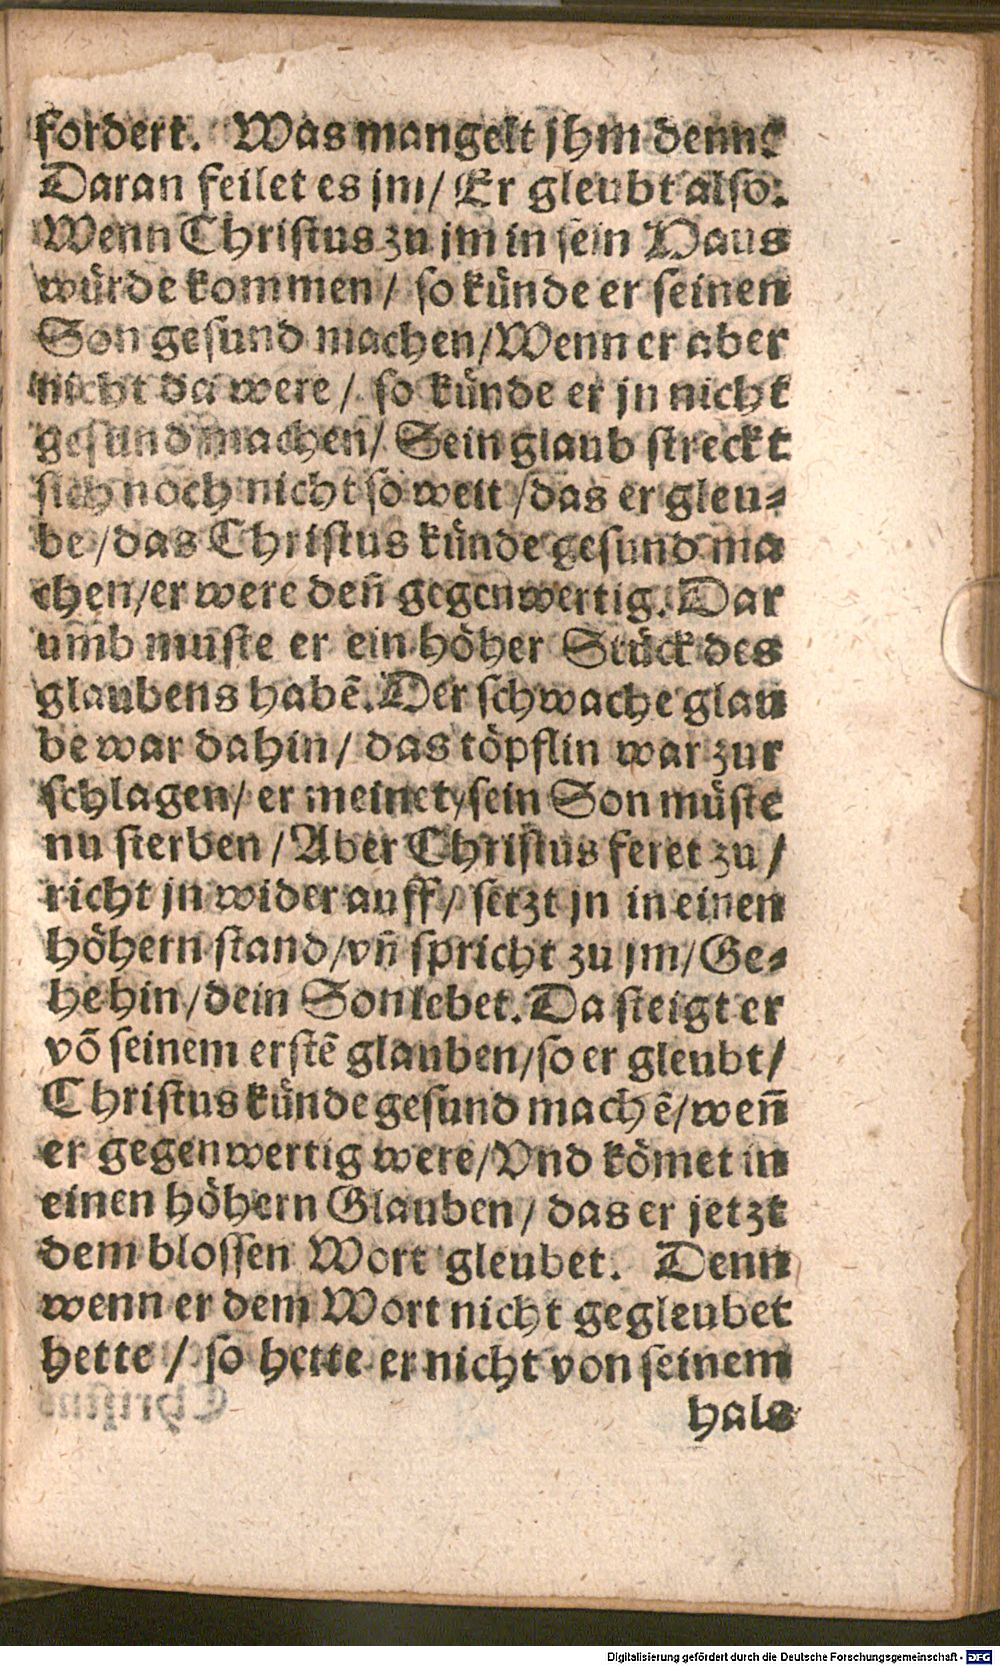 fordert. Was mangelt jhm denn?
Daran feilet es jm/ Er gleubt also:
Wenn Christus zu jm in sein Haus
würde kommen/ so künde er seinen
Son gesund machen/Wenn er aber
nicht da were/ so künde er jn nicht
gesund machen/ Sein glaub streckt
sich noch nicht so weit/das er gleu-
be/das Christus künde gesund ma
chen/er were deñ gegenwertig. Dar
umb muste er ein höher Stück des
glaubens habẽ. Der schwache glau
be war dahin/ das töpflin war zur
schlagen/ er meinet/sein Son müste
nu sterben/Aber Christus feret zu/
richt jn wider auff/ setzt jn in einen
höhern stand/vñ spricht zu jm/Ge-
he hin/dein Son lebet. Da steigt er
võ seinem erstẽ glauben/so er gleubt/
Christus künde gesund machẽ/weñ
er gegenwertig were/Vnd kömet in
einen höhern Glauben/das er jetzt
dem blossen Wort gleubet. Denn
wenn er dem Wort nicht gegleubet
hette/ so hette er nicht von seinem
hals
Digitalisierung gefördert durch die Deutsche Forschungsgemeinschaft - DFG